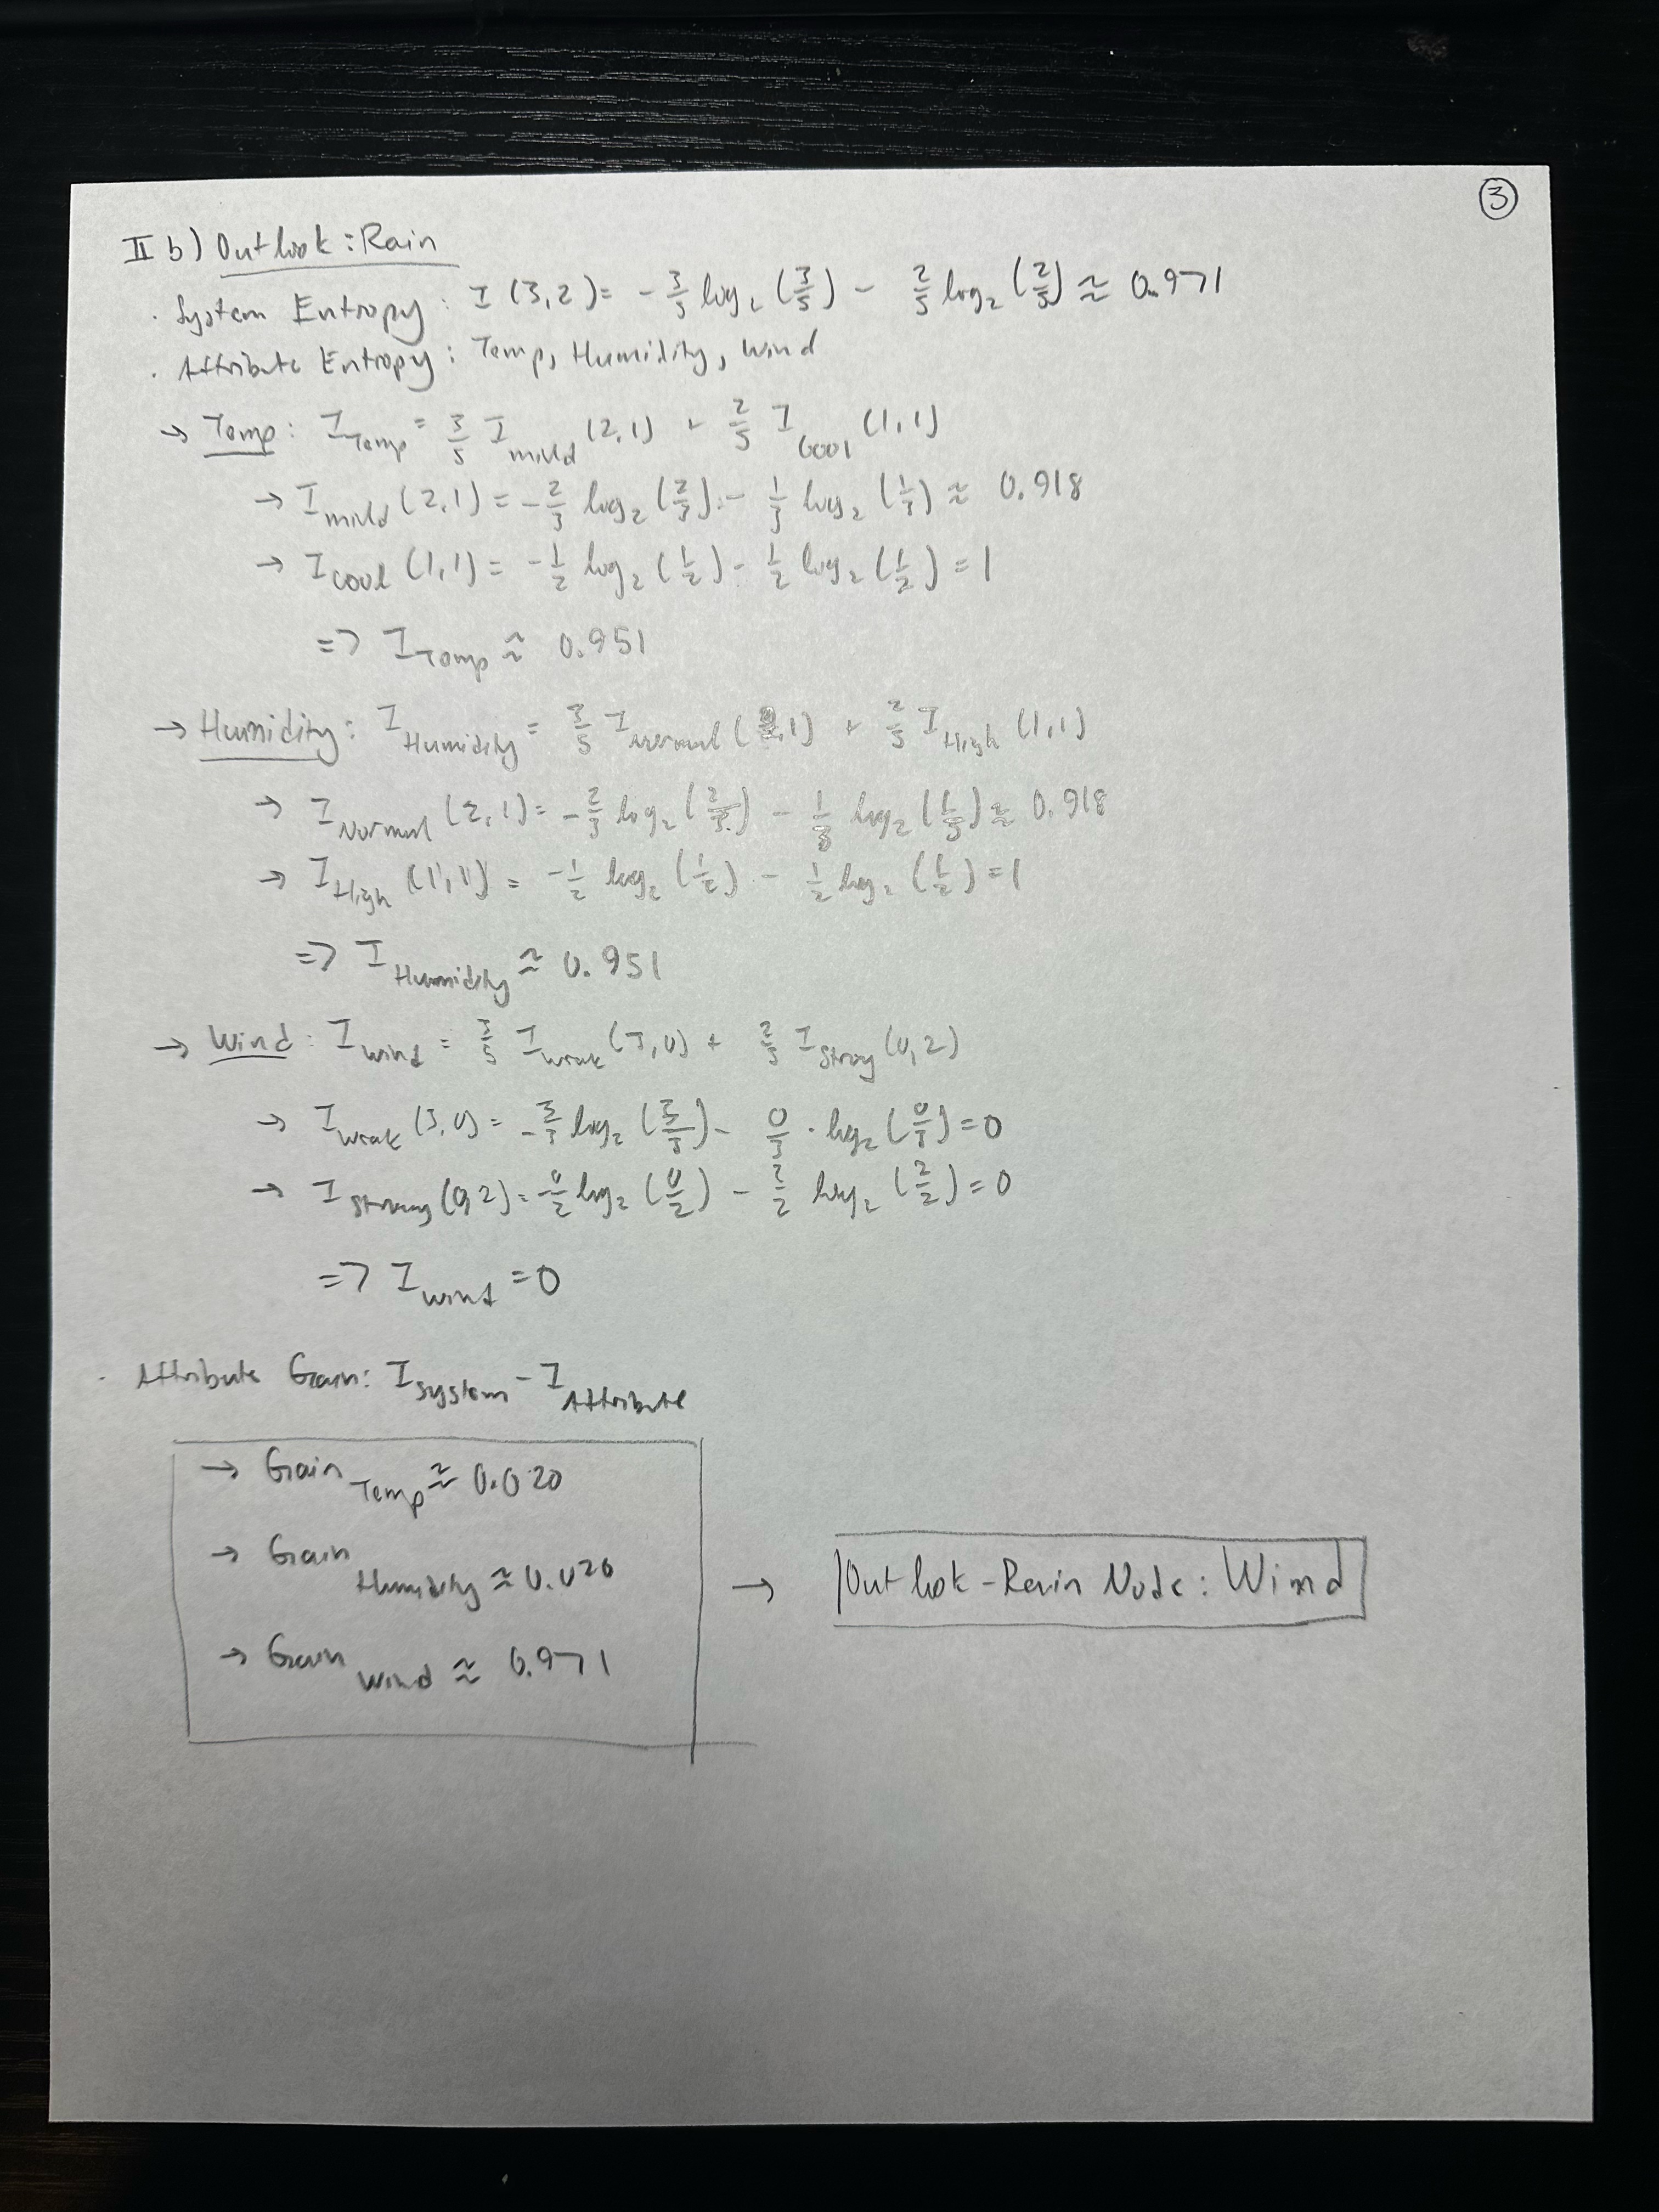 ③
II b) Outlook: Rain
· System Entropy: I (3,2) = - 3/5 log₂ (3/5) - 2/5 log₂ (2/5) ≈ 0.971
· Attribute Entropy: Temp, Humidity, Wind
→ Temp: I Temp = 3/5 I mild (2,1) + 2/5 I Cool (1,1)
→ I mild (2,1) = - 2/3 log₂ (2/3) - 1/3 log₂ (1/3) ≈ 0.918
→ I cool (1,1) = - 1/2 log₂ (1/2) - 1/2 log₂ (1/2) = 1
=> I Temp ≈ 0.951
→ Humidity: I Humidity = 3/5 I Normal (2,1) + 2/5 I High (1,1)
→ I Normal (2,1) = - 2/3 log₂ (2/3) - 1/3 log₂ (1/3) ≈ 0.918
→ I High (1,1) = - 1/2 log₂ (1/2) - 1/2 log₂ (1/2) = 1
=> I Humidity ≈ 0.951
→ Wind: I Wind = 3/5 I Weak (3,0) + 2/5 I Strong (0,2)
→ I Weak (3,0) = - 3/3 log₂ (3/3) - 0/3 · log₂ (0/3) = 0
→ I Strong (0,2) = - 0/2 log₂ (0/2) - 2/2 log₂ (2/2) = 0
=> I Wind = 0
· Attribute Gain: I System - I Attribute
→ Gain Temp ≈ 0.020
→ Gain Humidity ≈ 0.020
→ Gain Wind ≈ 0.971
→ Outlook-Rain Node: Wind